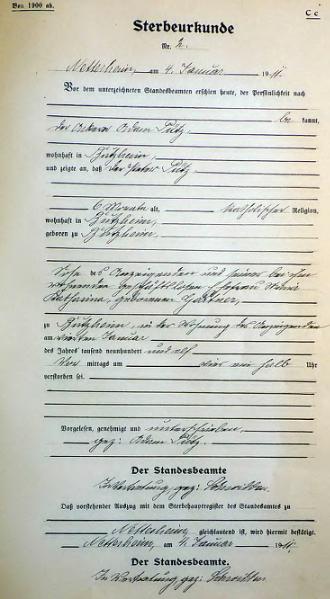 Von 1900 ab.
C c
Sterbeurkunde
Nr. 2.
Netterheim, am 4. Januar 1911.
Vor dem unterzeichneten Standesbeamten erschien heute, der Persönlichkeit nach
be kannt,
der Adam Pütz
wohnhaft in
und zeigte an, daß der Peter Pütz
6 Monate alt, katholischer Religion,
wohnhaft in
geboren zu
Sohn des Anzeigenden und seiner bei ihm
wohnenden geschäftslosen Ehefrau
Katharina, geborenen
zu in der Wohnung des Anzeigenden
am vierten Januar
des Jahres tausend neunhundert und elf
Vor mittags um vier ein halb Uhr
verstorben sei.
Vorgelesen, genehmigt und unterschrieben.
gez: Adam Pütz
Der Standesbeamte
In Vertretung, gez:
Daß vorstehender Auszug mit dem Sterbehauptregister des Standesamtes zu
Netterheim gleichlautend ist, wird hiermit bestätigt.
Netterheim, am 4. Januar 1911.
Der Standesbeamte.
In Vertretung gez: